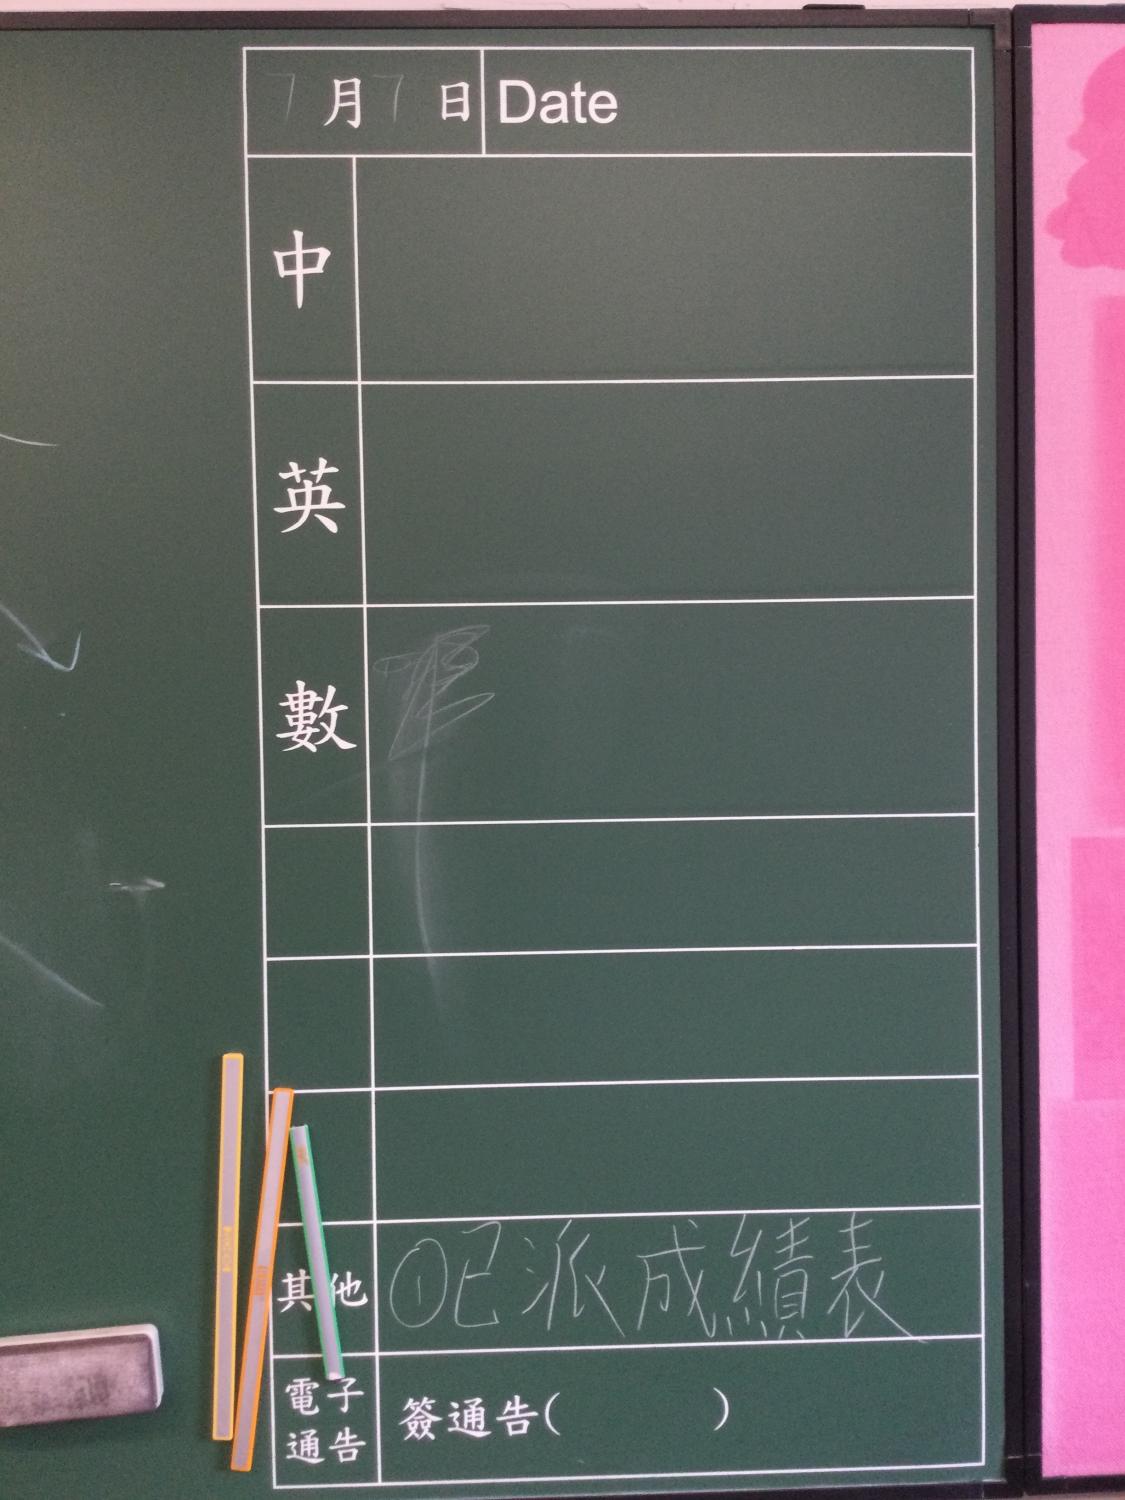 7月7日 Date
中
英
數
其他 ①已派成績表
電子
通告 簽通告( )